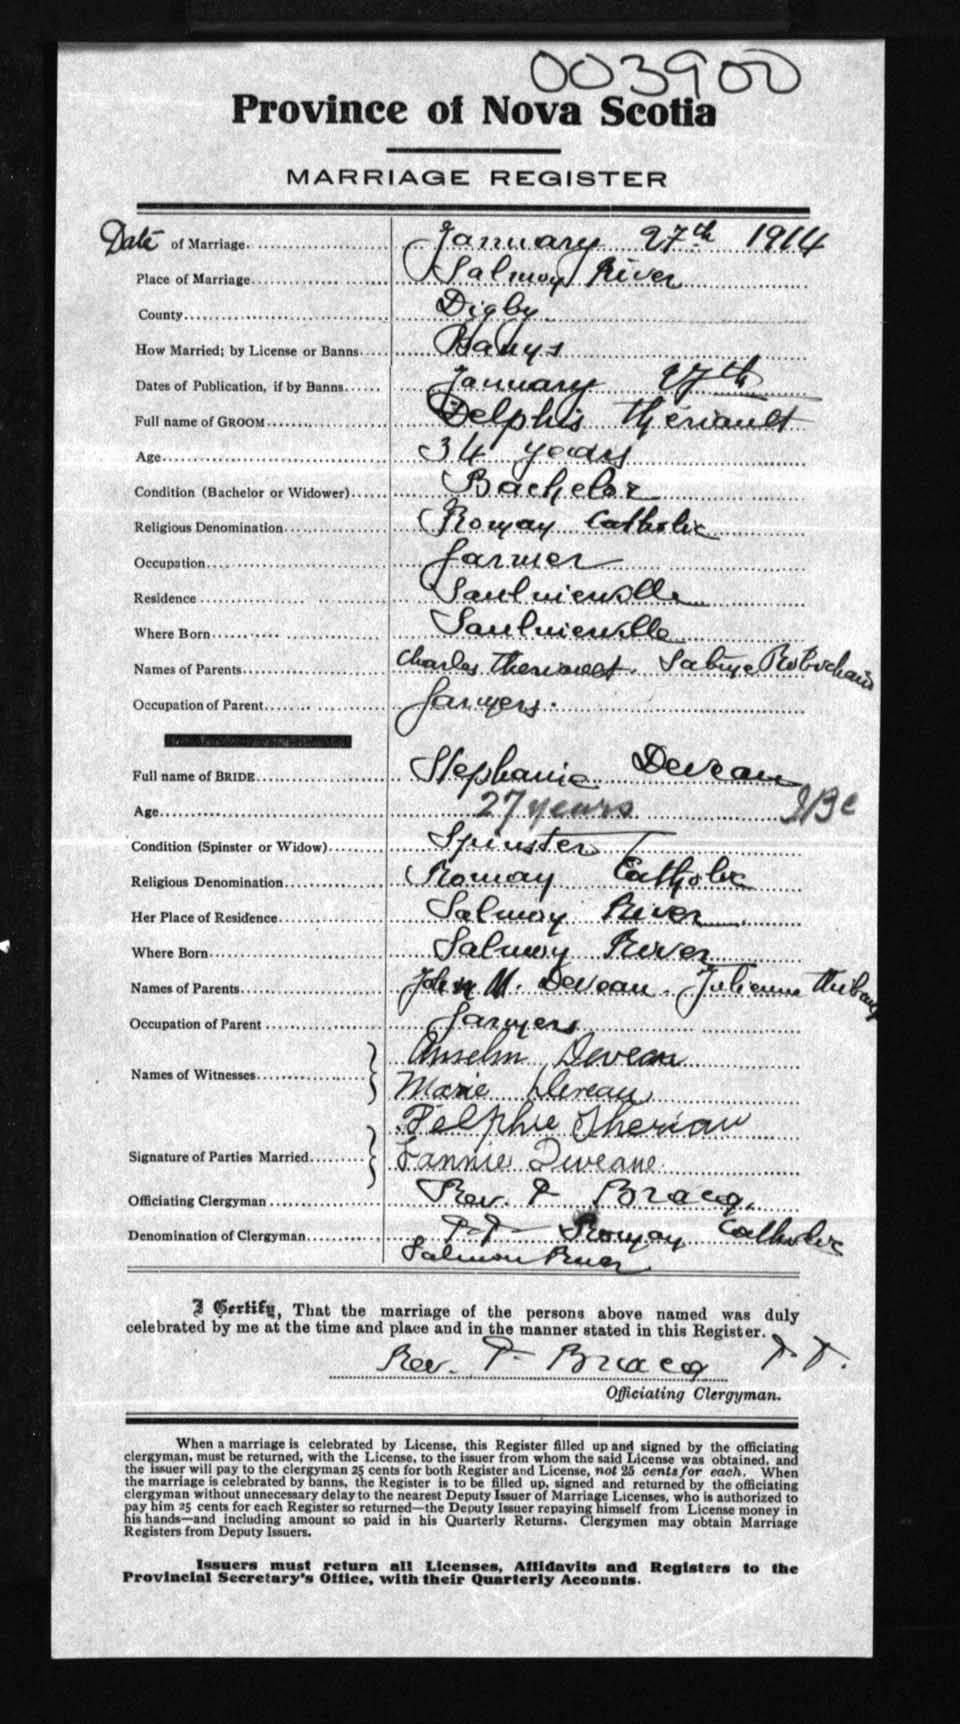 003900
Province of Nova Scotia
MARRIAGE REGISTER
Date of Marriage January 27th 1914
Place of Marriage Salmon River
County Digby
How Married; by License or Banns Banns
Dates of Publication, if by Banns January 27th
Full name of GROOM Delphis Thériault
Age 34 years
Condition (Bachelor or Widower) Bachelor
Religious Denomination Roman Catholic
Occupation farmer
Residence Saulnierville
Where Born Saulnierville
Names of Parents Charles Theriault. Sabine Robichaud
Occupation of Parent farmers.
Full name of BRIDE Stephanie Deveau
Age 27 years
Condition (Spinster or Widow) Spinster
Religious Denomination Roman Catholic
Her Place of Residence Salmon River
Where Born Salmon River
Names of Parents John M. Deveau. Julienne
Occupation of Parent farmers
Names of Witnesses Anselm Deveau
Marie Deveau
Signature of Parties Married Delphie Theriau
Fannie Deveane
Officiating Clergyman Rev. P Bracq.
Denomination of Clergyman P.P. Roman Catholic
Salmon River
I Certify, That the marriage of the persons above named was duly
celebrated by me at the time and place and in the manner stated in this Register.
Rev. P. Bracq P.P.
Officiating Clergyman.
When a marriage is celebrated by License, this Register filled up and signed by the officiating
clergyman, must be returned, with the License, to the issuer from whom the said License was obtained, and
the issuer will pay to the clergyman 25 cents for both Register and License, not 25 cents for each. When
the marriage is celebrated by banns, the Register is to be filled up, signed and returned by the officiating
clergyman without unnecessary delay to the nearest Deputy Issuer of Marriage Licenses, who is authorized to
pay him 25 cents for each Register so returned—the Deputy Issuer repaying himself from License money in
his hands—and including amount so paid in his Quarterly Returns. Clergymen may obtain Marriage
Registers from Deputy Issuers.
Issuers must return all Licenses, Affidavits and Registers to the
Provincial Secretary's Office, with their Quarterly Accounts.